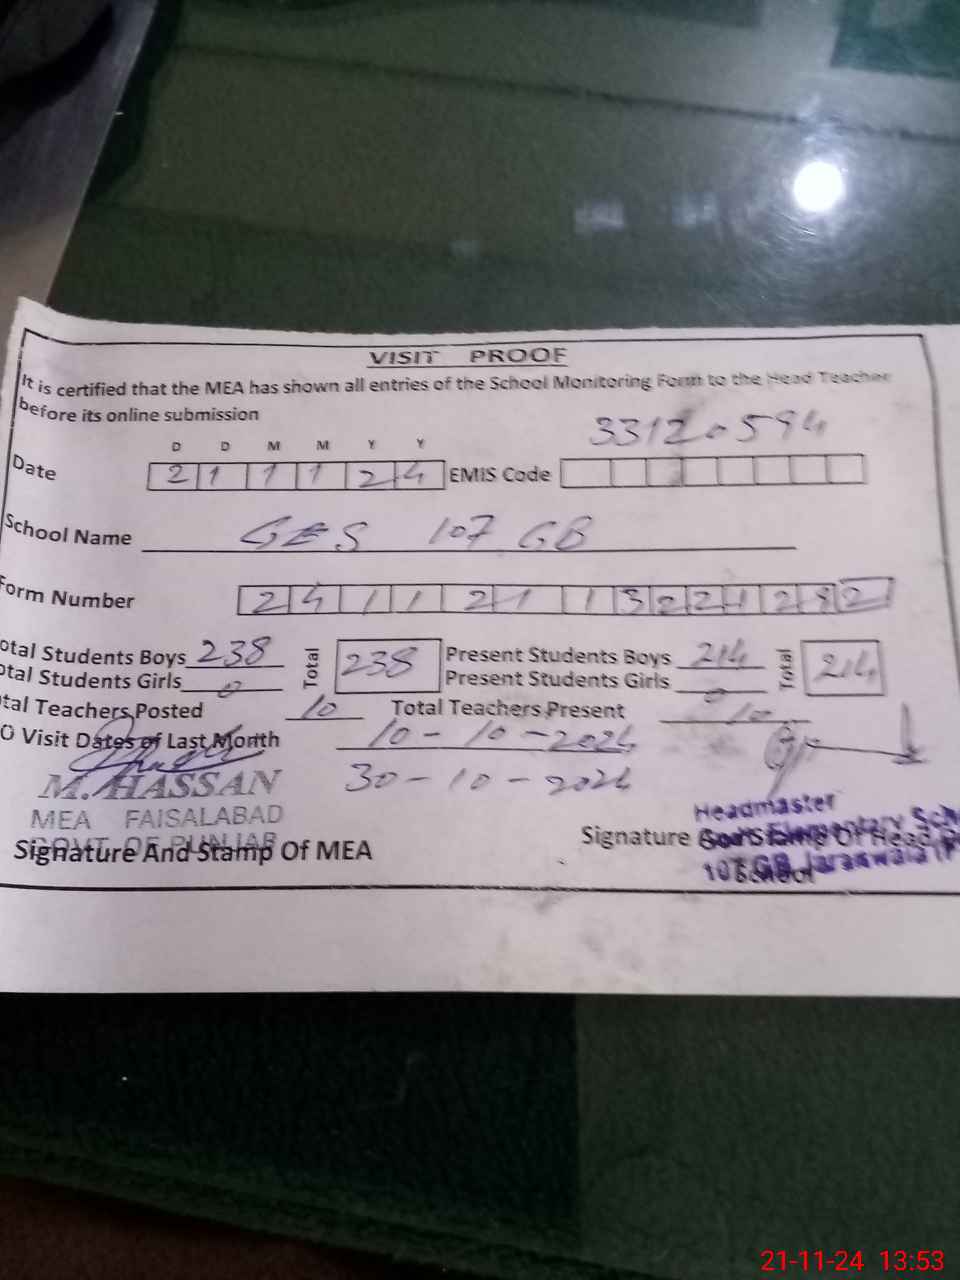 VISIT PROOF
It is certified that the MEA has shown all entries of the School Monitoring Form to the Head Teacher
before its online submission
33120594
D D M M Y Y
Date 2 1 1 1 2 4 EMIS Code
School Name GES 107 GB
Form Number 2 4 1 1 2 1 1 3 2 2 1 2 8 2
otal Students Boys 238 Total 238 Present Students Boys 214 Total 214
otal Students Girls 0 Present Students Girls 0
tal Teachers Posted 10 Total Teachers Present 10
O Visit Dates of Last Month 10-10-2024
30-10-2024
M. HASSAN
MEA FAISALABAD
GOVT OF PUNJAB
Signature And Stamp Of MEA
Headmaster
Signature And Stamp Of Head
Govt Elementary Sch
School
107 GB Jaranwala
21-11-24 13:53